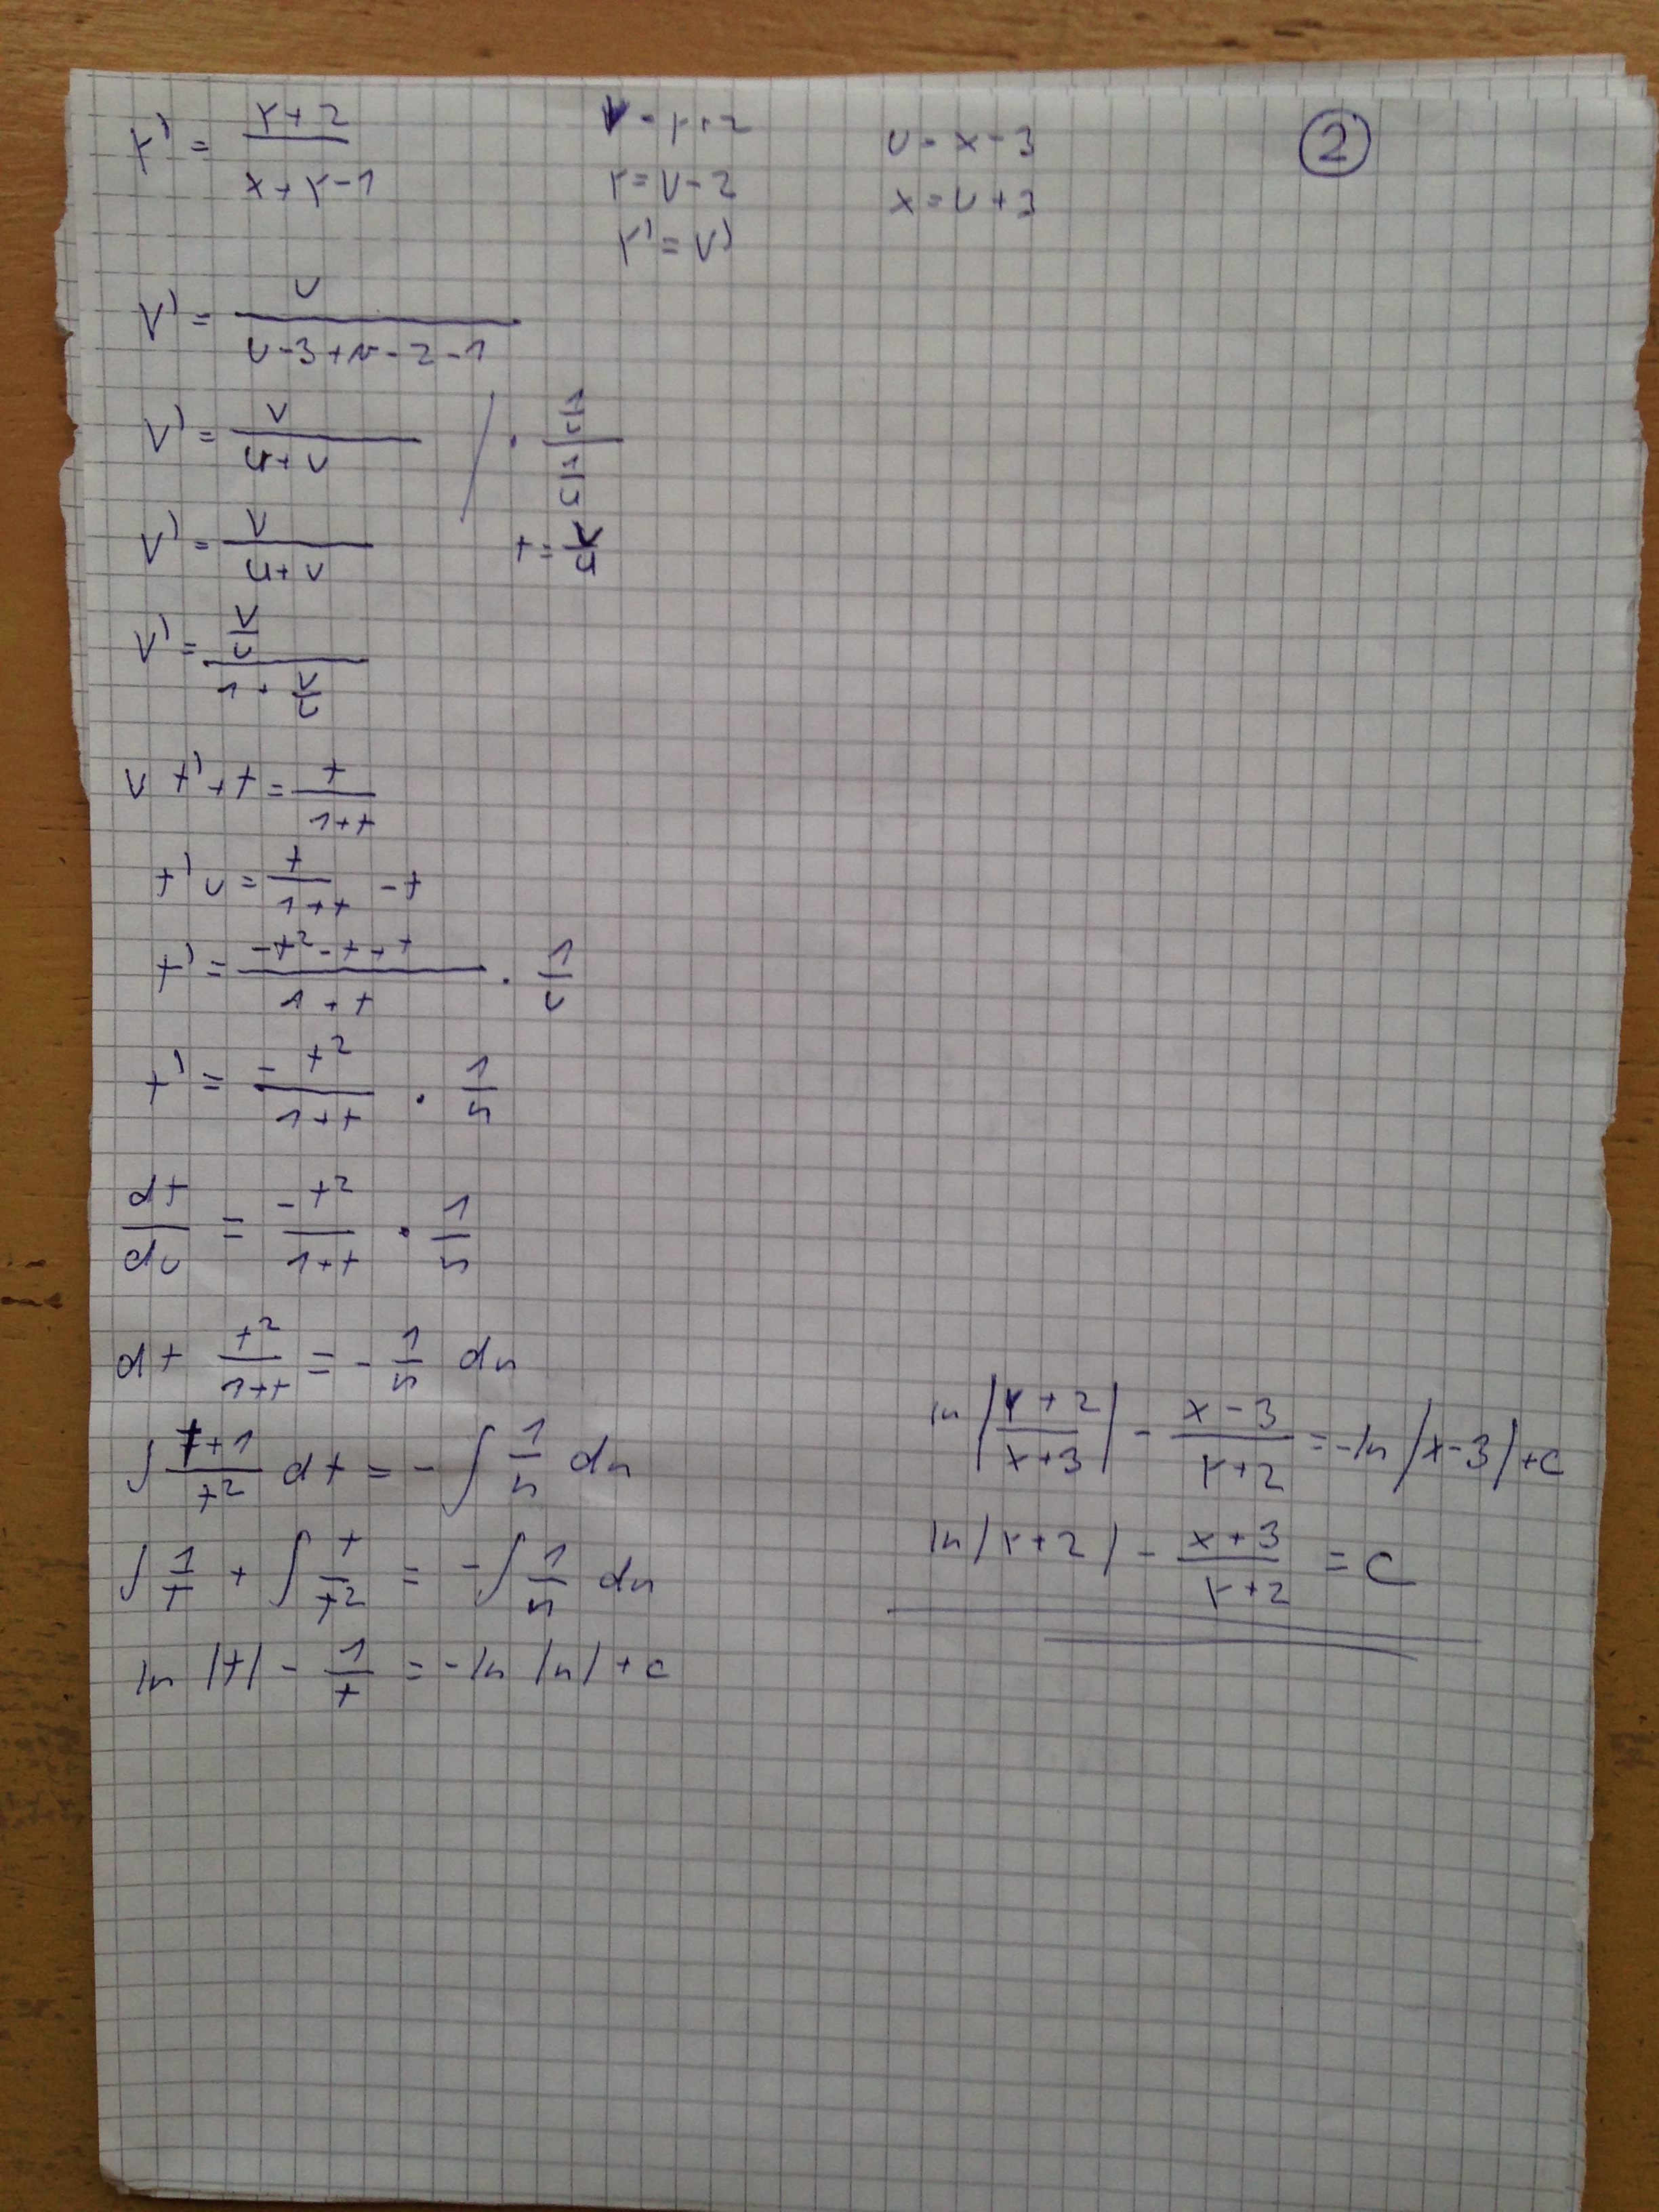 y' = (y+2)/(x+y-1)    v = y+2    u = x-3    ②
y = v-2    x = u+3
y' = v'
v' = v/(u-3+v-2-1)
v' = v/(u+v)  / · (1/u)/(1/u)
v' = v/(u+v)    t = v/u
v' = (v/u)/(1+v/u)
u t' + t = t/(1+t)
t' u = t/(1+t) - t
t' = (-t²-t+t)/(1+t) · 1/u
t' = (-t²)/(1+t) · 1/u
dt/du = (-t²)/(1+t) · 1/u
dt t²/(1+t) = - 1/u du
∫ (t+1)/t² dt = - ∫ 1/u du
∫ 1/t + ∫ t/t² = - ∫ 1/u du
ln |t| - 1/t = -ln |u| + c
ln |(y+2)/(x+3)| - (x-3)/(y+2) = -ln |x-3| + c
ln |y+2| - (x+3)/(y+2) = C